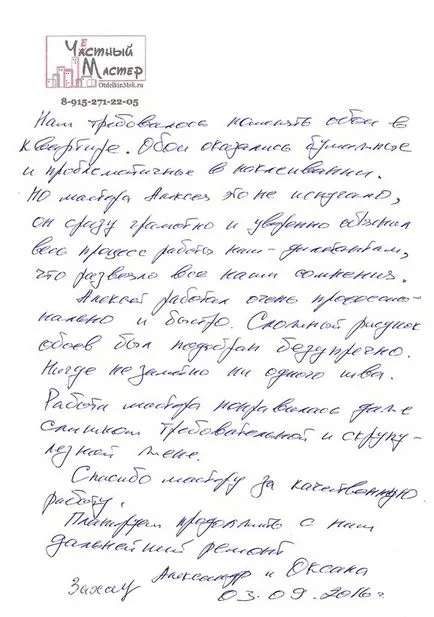 Честный
Мастер
OtdelkinMsk.ru
8-915-271-22-05
Нам требовалось поменять обои в
квартире. Обои оказались бумажные
и проблематичные в поклеивании.
Но мастера Алексея это не испугало,
он сразу грамотно и уверенно объяснил
весь процесс работы нам-дилетантам,
что развеяло все наши сомнения.
Алексей работал очень профессио-
нально и быстро. Сложный рисунок
обоев был подобран безупречно.
Нигде не заметно ни одного шва.
Работа мастера понравилась даже
слишком требовательной и скрупу-
лезной жене.
Спасибо мастеру за качественную
работу.
Планируем продолжить с ним
дальнейший ремонт
Александр и Оксана
03.09.2016г